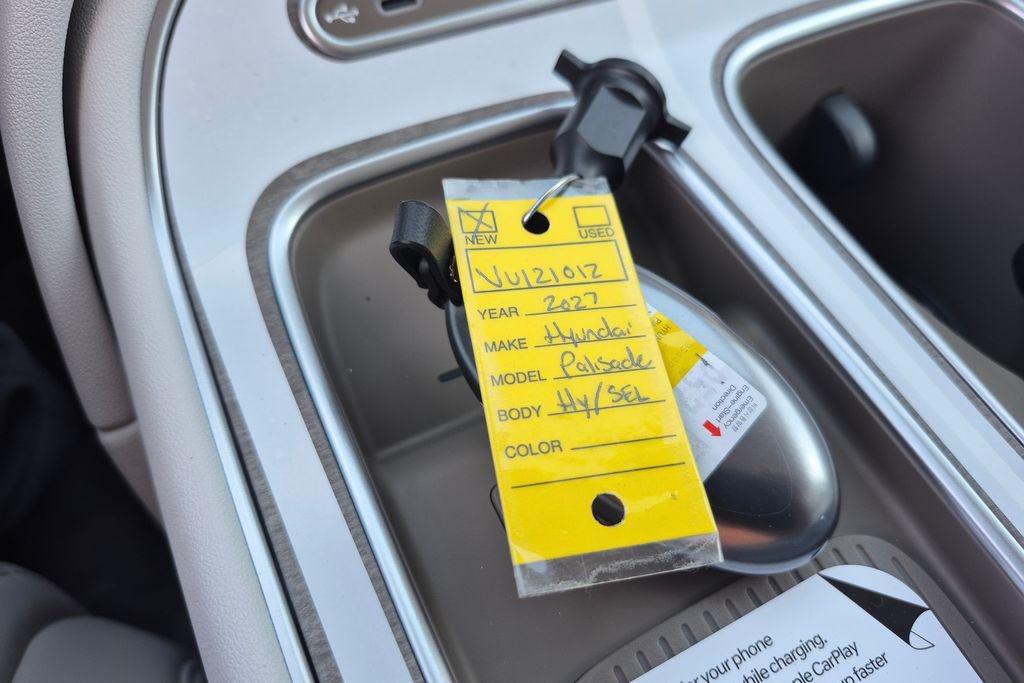 NEW
USED
VU121012
YEAR 2027
MAKE Hyundai
MODEL Palisade
BODY Hy/SEL
COLOR
Emergency
Engine-Start
Direction
your phone
while charging.
CarPlay
faster